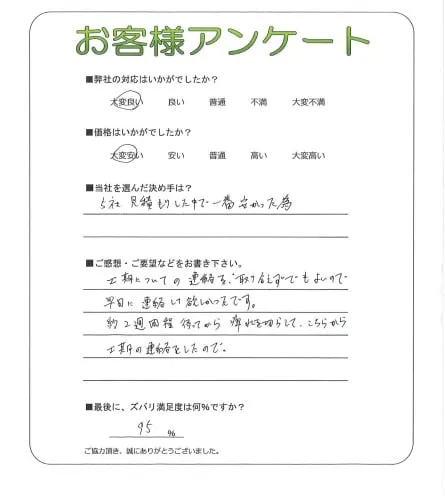 お客様アンケート
■弊社の対応はいかがでしたか?
大変良い 良い 普通 不満 大変不満
■価格はいかがでしたか?
大変安い 安い 普通 高い 大変高い
■当社を選んだ決め手は?
5社 見積もりした中で一番安かった為
■ご感想・ご要望などをお書き下さい。
工期についての連絡を、取り合えずでもよいので
早目に連絡して欲しかったです。
約2週間程待ってから 痺れを切らして、こちらから
工期の連絡をしたので。
■最後に、ズバリ満足度は何%ですか?
95 %
ご協力頂き、誠にありがとうございました。